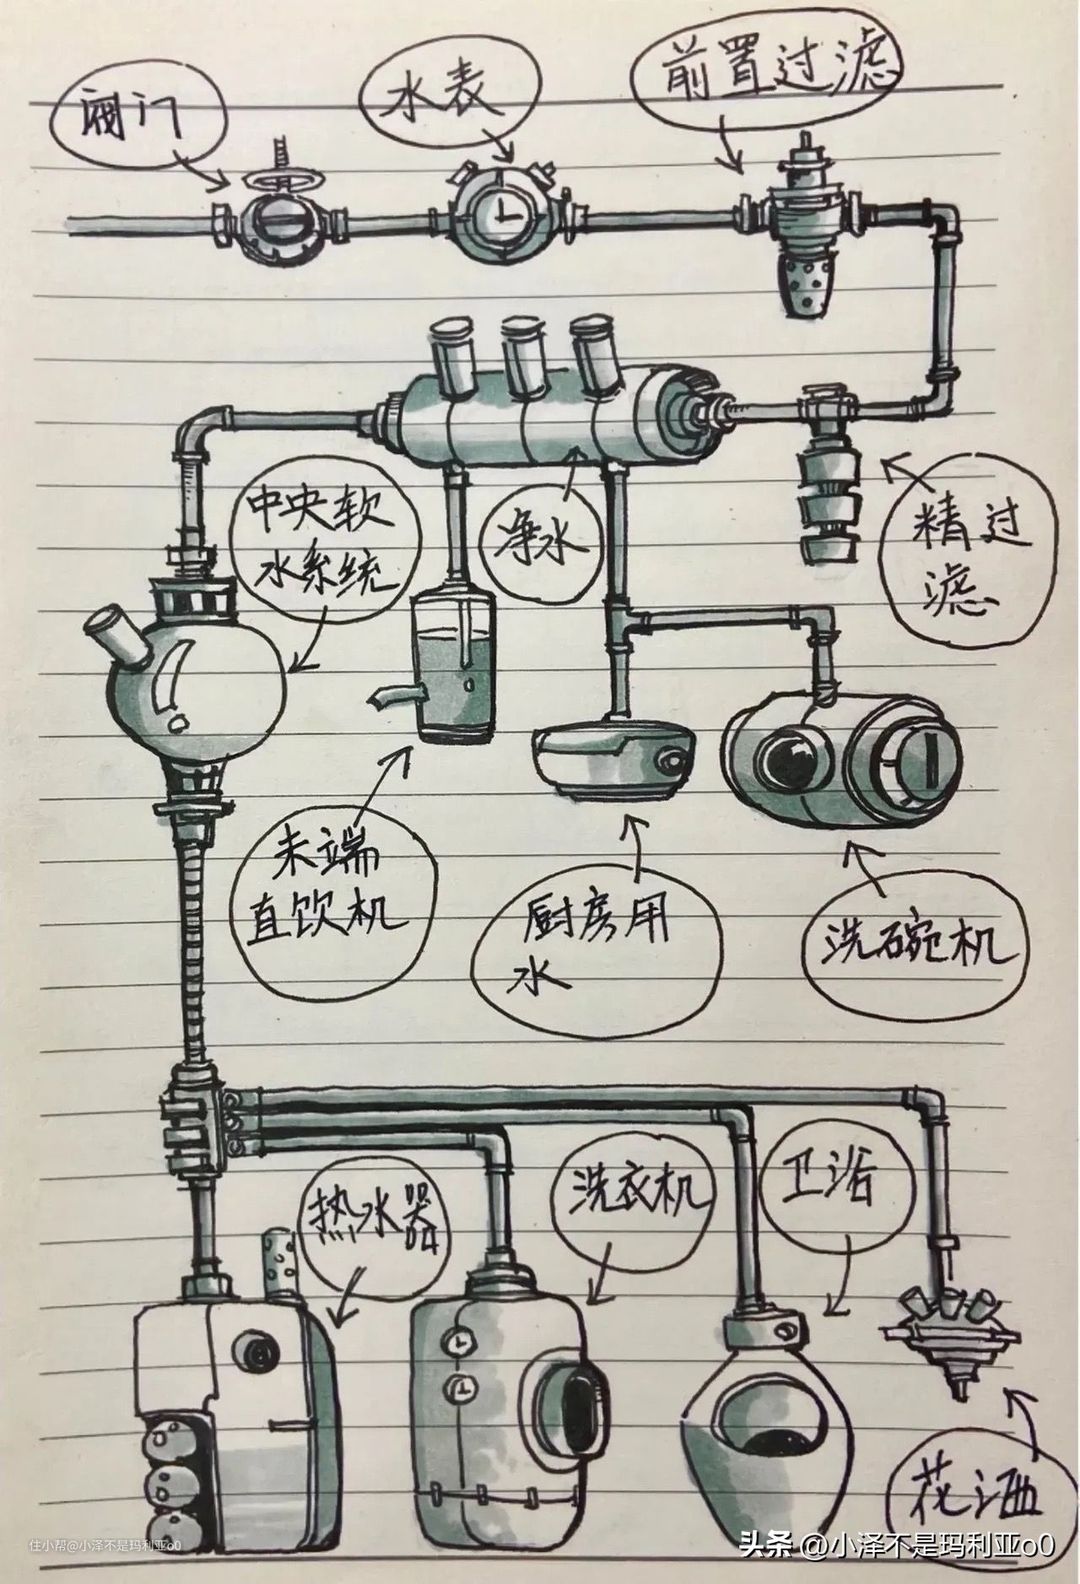 阀门
水表
前置过滤
中央软
水系统
净水
精过
滤
末端
直饮机
厨房用
水
洗碗机
热水器
洗衣机
卫浴
花洒
住小帮@小泽不是玛利亚o0
头条 @小泽不是玛利亚o0